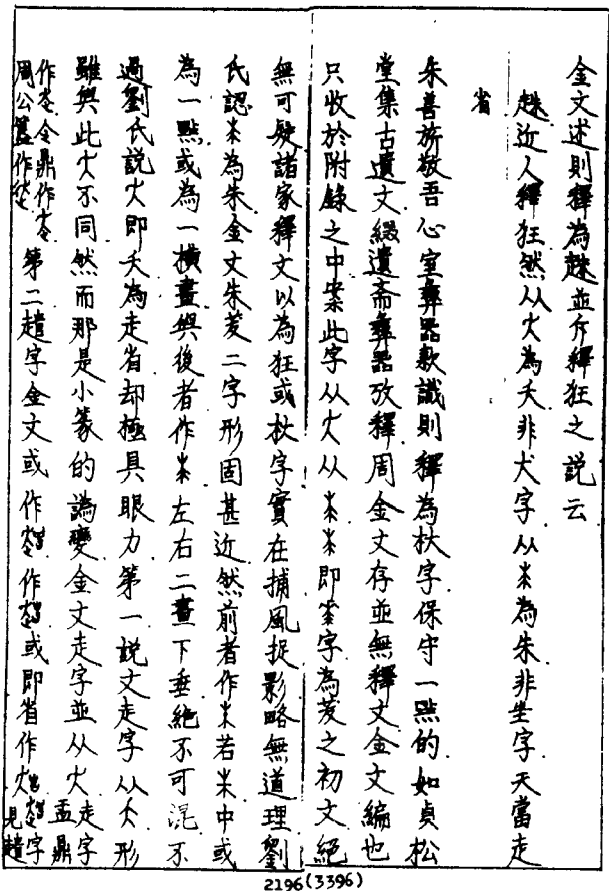 金文述則釋為趎並斥釋狂之說云
趎近人釋狂然从犬為夭非犬字从朱為朱非㞷字夭當走
省
朱善旂敬吾心室彝器款識則釋為杕字保守一點的如貞松
堂集古遺文綴遺斋彝器攷釋周金文存並無釋文金文編也
只收於附錄之中案此字从大从朱朱即字為犮之初文絕
無可疑諸家釋文以為狂或杕字實在捕風捉影略無道理劉
氏認朱為朱金文朱犮二字形固甚近然前者作朱若朱中或
為一點或為一橫畫與後者作左右二畫下垂絕不可混不
過劉氏說大即夭為走省却極具眼力第一說文走字从夭形
雖與此大不同然而那是小篆的譌變金文走字並从大走字盂鼎
作令鼎作周公簋作第二趙字金文或作作或即省作字見趙
2196(3396)